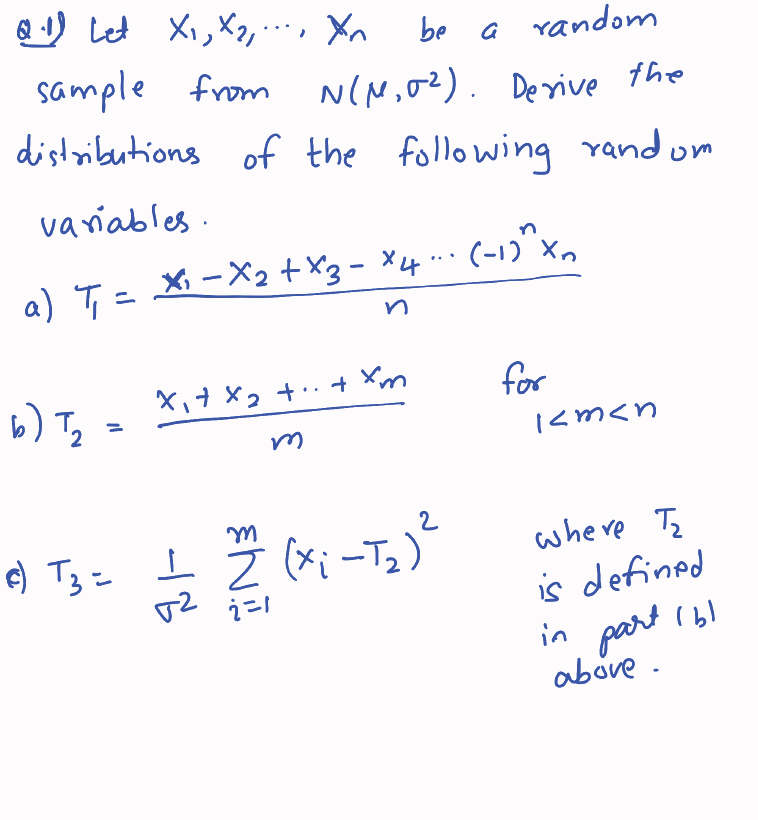 Q.1) Let X₁, X₂, ..., Xn be a random
sample from N(μ, σ²). Derive the
distributions of the following random
variables.
a) T₁ = (X₁ - X₂ + X₃ - X₄ ... (-1)ⁿ Xn) / n
b) T₂ = (X₁ + X₂ + .. + Xm) / m for 1 < m < n
c) T₃ = 1/σ² Σ_{i=1}^{m} (Xi - T₂)² where T₂
is defined
in part (b)
above.